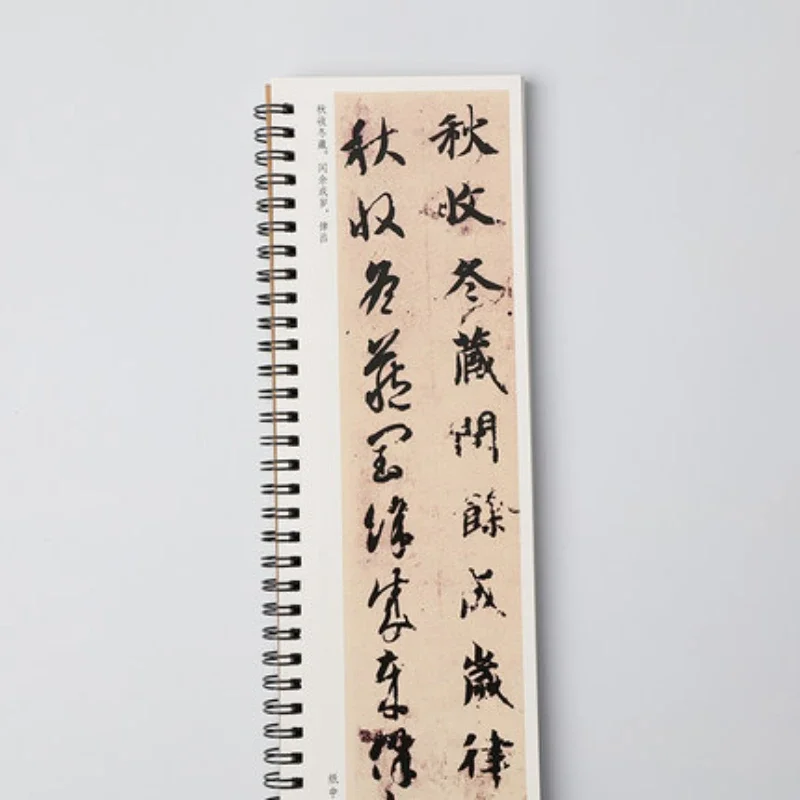 秋收冬藏閏餘成歲律
秋收冬藏閏餘成歲律
秋收冬藏。闰余成岁，律吕